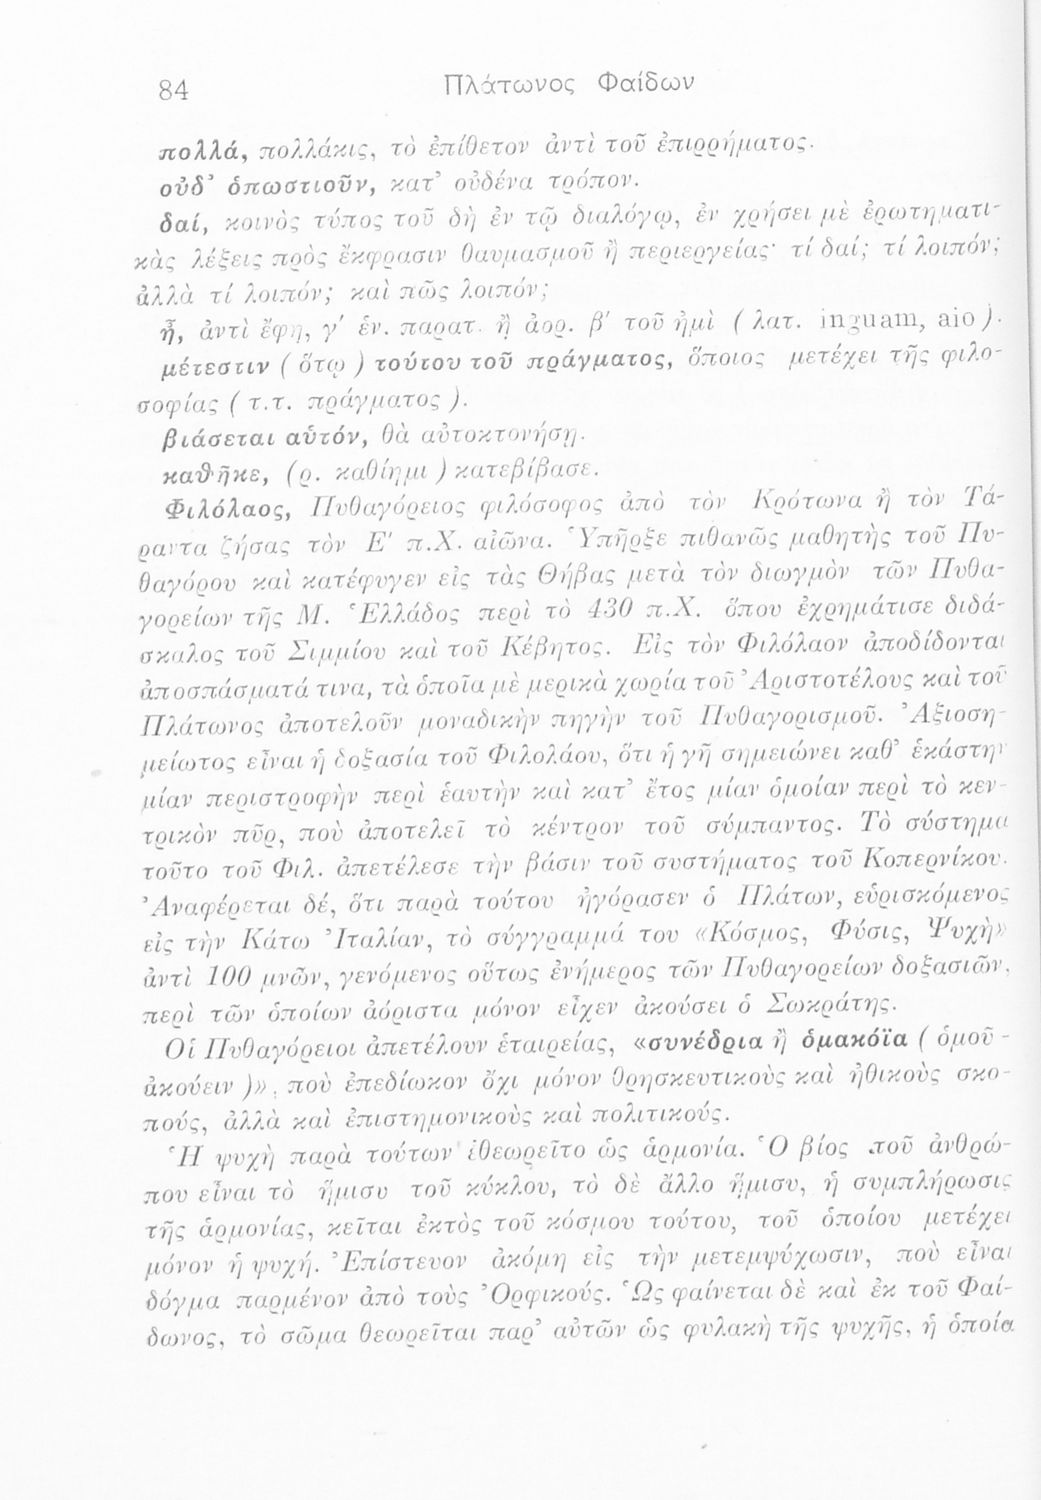 84
Πλάτωνος Φαίδων
πολλά, πολλάκις, τὸ ἐπίθετον ἀντὶ τοῦ ἐπιρρήματος.
οὐδ' ὁπωστιοῦν, κατ' οὐδένα τρόπον.
δαί, κοινὸς τύπος τοῦ δὴ ἐν τῷ διαλόγῳ, ἐν χρήσει μὲ ἐρωτηματι-
κὰς λέξεις πρὸς ἔκφρασιν θαυμασμοῦ ἢ περιεργείας· τί δαί; τί λοιπόν;
ἀλλὰ τί λοιπόν; καὶ πῶς λοιπόν;
ἦ, ἀντὶ ἔφη, γ' ἑν. παρατ. ἢ ἀορ. β' τοῦ ἠμὶ ( λατ. inguam, aio ).
μέτεστιν ( ὅτῳ ) τούτου τοῦ πράγματος, ὅποιος μετέχει τῆς φιλο-
σοφίας ( τ.τ. πράγματος ).
βιάσεται αὑτόν, θὰ αὐτοκτονήσῃ.
καθῆκε, (ρ. καθίημι ) κατεβίβασε.
Φιλόλαος, Πυθαγόρειος φιλόσοφος ἀπὸ τὸν Κρότωνα ἢ τὸν Τά-
ραντα ζήσας τὸν Ε' π.Χ. αἰῶνα. Ὑπῆρξε πιθανῶς μαθητὴς τοῦ Πυ-
θαγόρου καὶ κατέφυγεν εἰς τὰς Θήβας μετὰ τὸν διωγμὸν τῶν Πυθα-
γορείων τῆς Μ. Ἑλλάδος περὶ τὸ 430 π.Χ. ὅπου ἐχρημάτισε διδά-
σκαλος τοῦ Σιμμίου καὶ τοῦ Κέβητος. Εἰς τὸν Φιλόλαον ἀποδίδονται
ἀποσπάσματά τινα, τὰ ὁποῖα μὲ μερικὰ χωρία τοῦ Ἀριστοτέλους καὶ τοῦ
Πλάτωνος ἀποτελοῦν μοναδικὴν πηγὴν τοῦ Πυθαγορισμοῦ. Ἀξιοση-
μείωτος εἶναι ἡ δοξασία τοῦ Φιλολάου, ὅτι ἡ γῆ σημειώνει καθ' ἑκάστην
μίαν περιστροφὴν περὶ ἑαυτὴν καὶ κατ' ἔτος μίαν ὁμοίαν περὶ τὸ κεν-
τρικὸν πῦρ, ποὺ ἀποτελεῖ τὸ κέντρον τοῦ σύμπαντος. Τὸ σύστημα
τοῦτο τοῦ Φιλ. ἀπετέλεσε τὴν βάσιν τοῦ συστήματος τοῦ Κοπερνίκου.
Ἀναφέρεται δέ, ὅτι παρὰ τούτου ἠγόρασεν ὁ Πλάτων, εὑρισκόμενος
εἰς τὴν Κάτω Ἰταλίαν, τὸ σύγγραμμά του «Κόσμος, Φύσις, Ψυχὴ»
ἀντὶ 100 μνῶν, γενόμενος οὕτως ἐνήμερος τῶν Πυθαγορείων δοξασιῶν,
περὶ τῶν ὁποίων ἀόριστα μόνον εἶχεν ἀκούσει ὁ Σωκράτης.
Οἱ Πυθαγόρειοι ἀπετέλουν ἑταιρείας, «συνέδρια ἢ ὁμακόϊα ( ὁμοῦ -
ἀκούειν )», ποὺ ἐπεδίωκον ὄχι μόνον θρησκευτικοὺς καὶ ἠθικοὺς σκο-
πούς, ἀλλὰ καὶ ἐπιστημονικοὺς καὶ πολιτικούς.
Ἡ ψυχὴ παρὰ τούτων ἐθεωρεῖτο ὡς ἁρμονία. Ὁ βίος τοῦ ἀνθρώ-
που εἶναι τὸ ἥμισυ τοῦ κύκλου, τὸ δὲ ἄλλο ἥμισυ, ἡ συμπλήρωσις
τῆς ἁρμονίας, κεῖται ἐκτὸς τοῦ κόσμου τούτου, τοῦ ὁποίου μετέχει
μόνον ἡ ψυχή. Ἐπίστευον ἀκόμη εἰς τὴν μετεμψύχωσιν, ποὺ εἶναι
δόγμα παρμένον ἀπὸ τοὺς Ὀρφικούς. Ὡς φαίνεται δὲ καὶ ἐκ τοῦ Φαί-
δωνος, τὸ σῶμα θεωρεῖται παρ' αὐτῶν ὡς φυλακὴ τῆς ψυχῆς, ἡ ὁποία